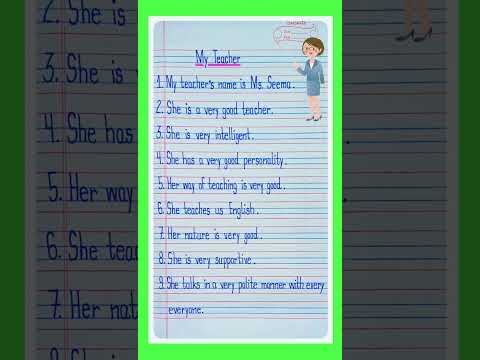 My Teacher
1. My teacher's name is Ms. Seema.
2. She is a very good teacher.
3. She is very intelligent.
4. She has a very good personality.
5. Her way of teaching is very good.
6. She teaches us English.
7. Her nature is very good.
8. She is very supportive.
9. She talks in a very polite manner with every
everyone.